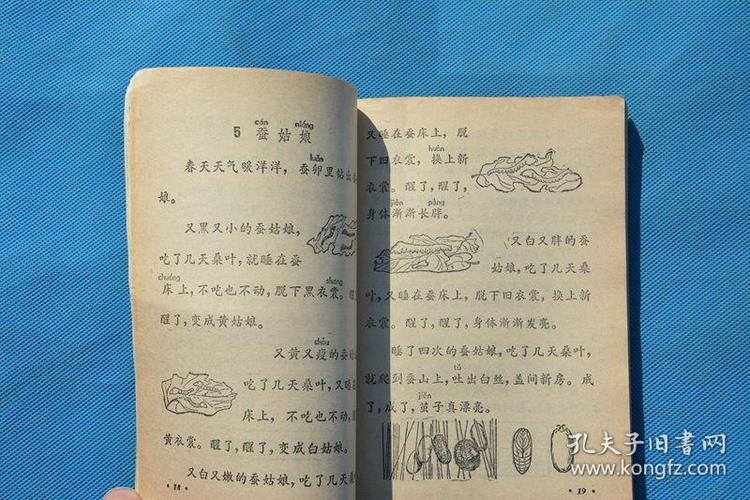 cán niáng
5 蚕姑娘
luǎn
春天天气暖洋洋，蚕卵里钻出
娘。
又黑又小的蚕姑娘，
吃了几天桑叶，就睡在蚕
chuáng shang
床上，不吃也不动，脱下黑衣裳。醒
醒了，变成黄姑娘。
shòu
又黄又瘦的蚕
吃了几天桑叶，又睡
床上，不吃也不动，
黄衣裳。醒了，醒了，变成白姑娘。
又白又嫩的蚕姑娘，吃了几天
·18·
又睡在蚕床上，脱
huàn
下旧衣裳，换上新
衣裳。醒了，醒了，
jiàn pàng
身体渐渐长胖。
又白又胖的蚕
姑娘，吃了几天桑
叶，又睡在蚕床上，脱下旧衣裳，换上新
衣裳。醒了，醒了，身体渐渐发亮。
睡了四次的蚕姑娘，吃了几天桑叶，
tǔ
就爬到蚕山上，吐出白丝，盖间新房。成
jiǎn
了，成了，茧子真漂亮。
·19·
孔夫子旧书网
www.kongfz.com